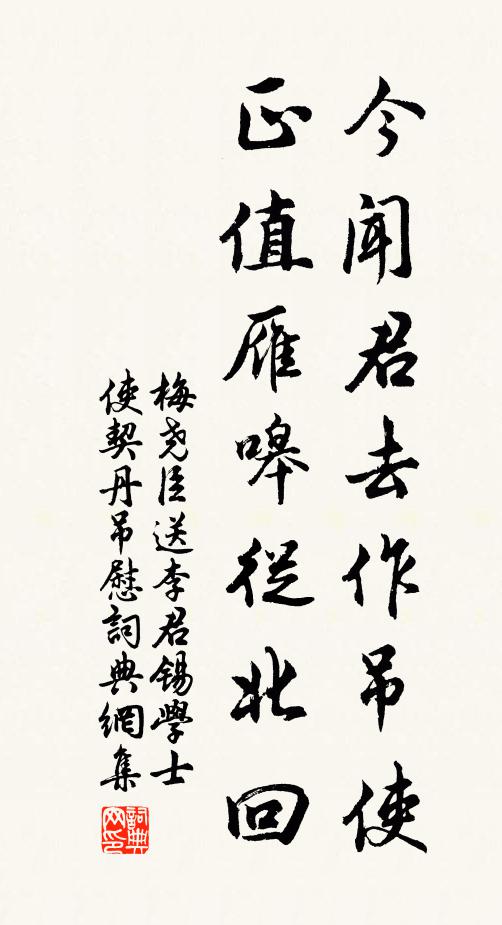 今闻君去作吊使
正值雁嗥從北回
梅尧臣送李君锡學士
使契丹吊慰詞典網集
詞典网印